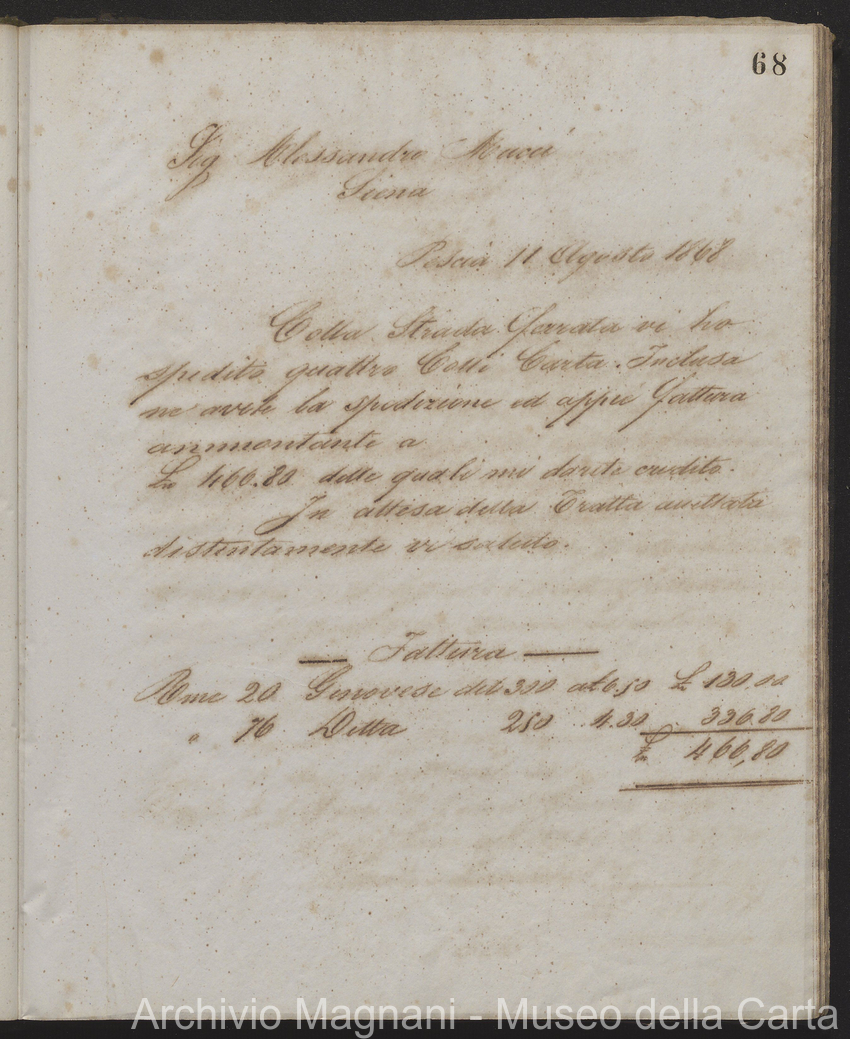 68
Sig Alessandro Mucci
Siena
Pescia 11 Agosto 1868
Colla Strada Ferrata vi ho
spedito quattro Colli Carta. Inclusa
ne avete la spedizione ed appiè fattura
ammontante a
L. 466.80 delle quali mi darete credito.
In attesa della Tratta accettata
distintamente vi saluto.
— Fattura —
Rme 20 Genovese del 300 a L 6.50 L 130.00
" 76 Detta 250 4.30 336.80
L 466,80
Archivio Magnani - Museo della Carta